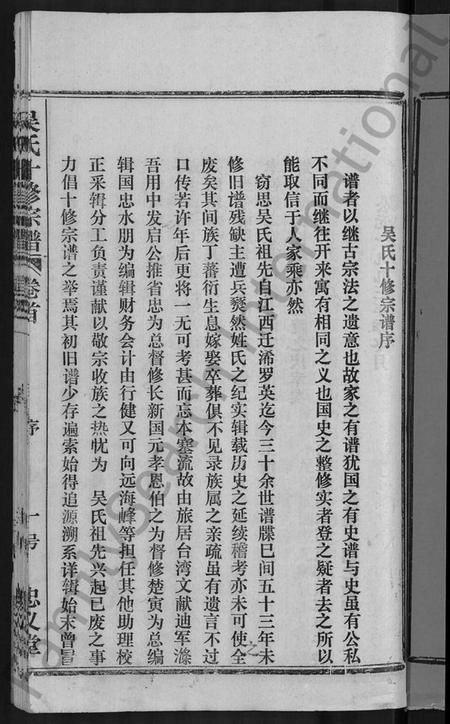 吴氏十修宗谱序
谱者以继古宗法之遗意也故家之有谱犹国之有史谱与史虽有公私
不同而继往开来寓有相同之义也国史之整修实者登之疑者去之所以
能取信于人家乘亦然
窃思吴氏祖先自江西迁浠罗英迄今三十余世谱牒已间五十三年未
修旧谱残缺主遭兵燹然姓氏之纪实辑载历史之延续稽考亦未可使全
废矣其间族丁蕃衍生息嫁娶卒葬俱不见录族属之亲疏虽有遗言不过
口传若许年后更将一无可考甚而忘本塞流故由旅居台湾文献迪军滌
吾用中发启公推省忠为总督修长新国元孝恩伯之为督修楚寅为总编
辑国忠水朋为编辑财务会计由行健又可向远海峰等担任其他助理校
正采辑分工负责谨献以敬宗收族之热忱为 吴氏祖先兴起已废之事
力倡十修宗谱之举焉其初旧谱少存遍索始得追源溯系详辑始末曾
吴氏十修宗谱 卷首 序 一号 忠义堂
FamilySearch International